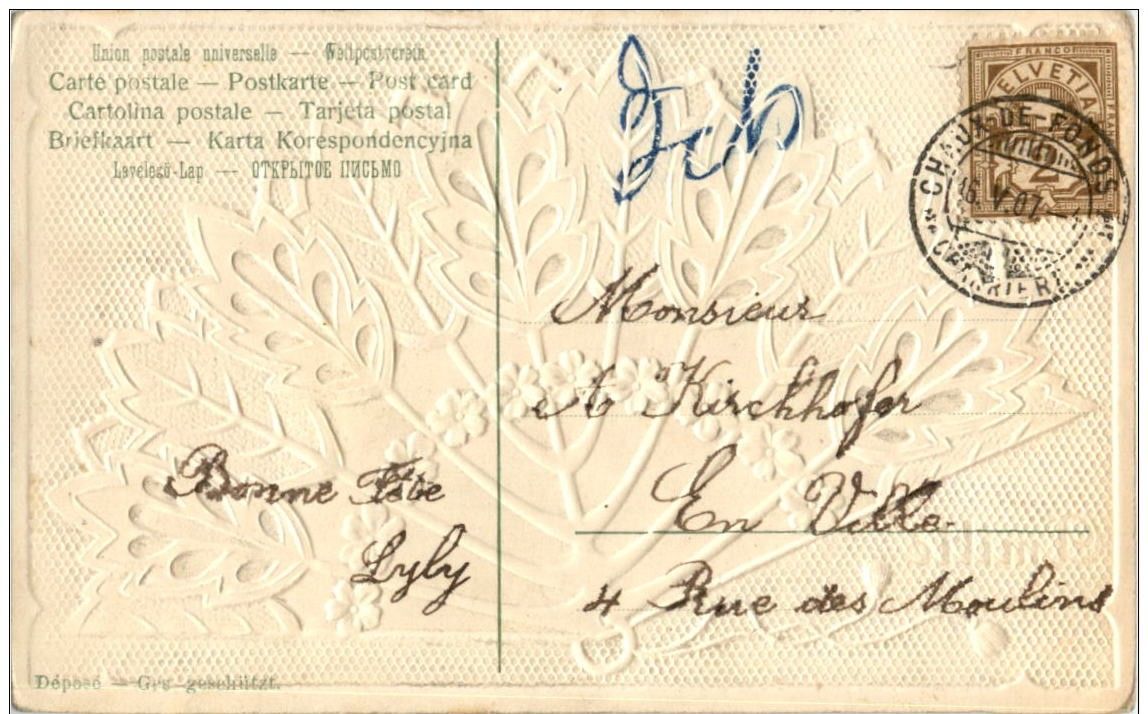 Union postale universelle — Weltpostverein
Carte postale — Postkarte — Post card
Cartolina postale — Tarjeta postal
Briefkaart — Karta Korespondencyjna
Levelező-Lap — ОТКРЫТОЕ ПИСЬМО
FRANCO
HELVETIA
2
CHAUX-DE-FONDS
16. V. 07
Monsieur
A Kirchhofer
En Ville
4 Rue des Moulins
Bonne Fête
Lyly
Déposé — Ges. geschützt.